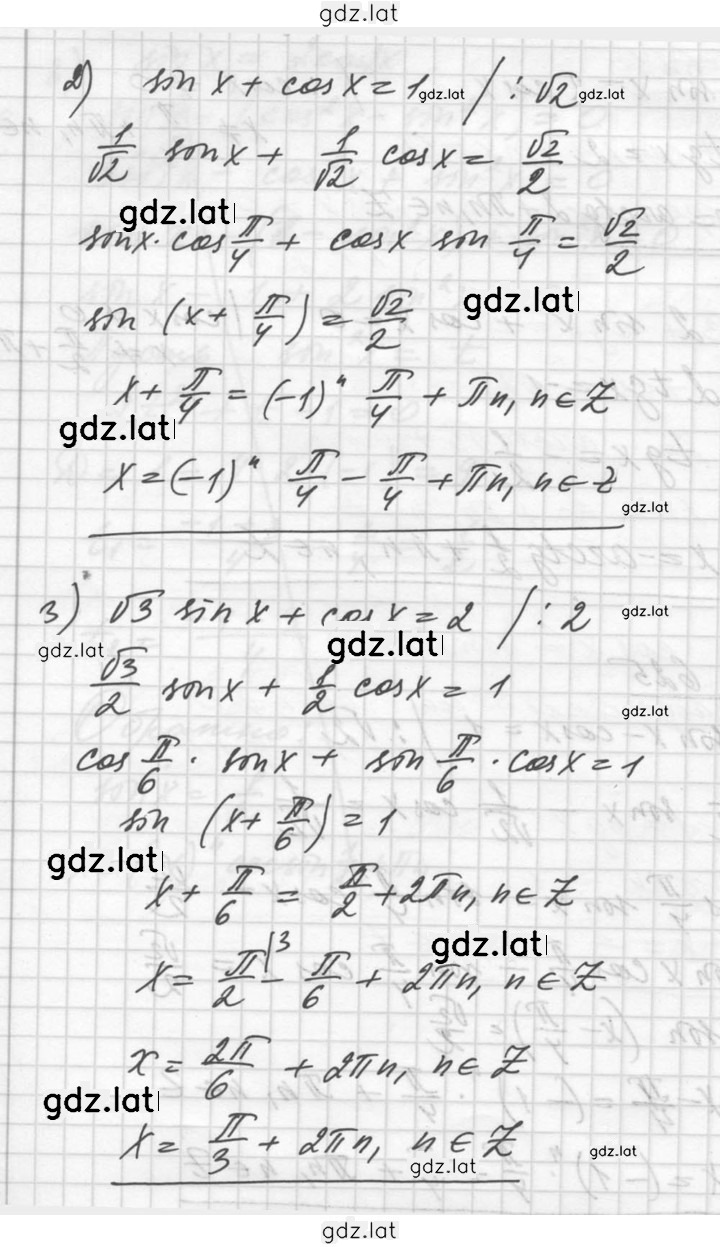 gdz.lat
2) sin x + cos x = 1 gdz.lat / : √2 gdz.lat
1/√2 sin x + 1/√2 cos x = √2/2
gdz.lat
sin x · cos π/4 + cos x sin π/4 = √2/2
gdz.lat
sin (x + π/4) = √2/2
x + π/4 = (-1)ⁿ π/4 + πn, n ∈ Z
gdz.lat
x = (-1)ⁿ π/4 - π/4 + πn, n ∈ Z
gdz.lat
3) √3 sin x + cos x = 2 / : 2 gdz.lat
gdz.lat gdz.lat
√3/2 sin x + 1/2 cos x = 1
gdz.lat
cos π/6 · sin x + sin π/6 · cos x = 1
sin (x + π/6) = 1
gdz.lat
x + π/6 = π/2 + 2πn, n ∈ Z
gdz.lat
x = π/2 |3 - π/6 + 2πn, n ∈ Z
x = 2π/6 + 2πn, n ∈ Z
gdz.lat
x = π/3 + 2πn, n ∈ Z
gdz.lat gdz.lat
gdz.lat